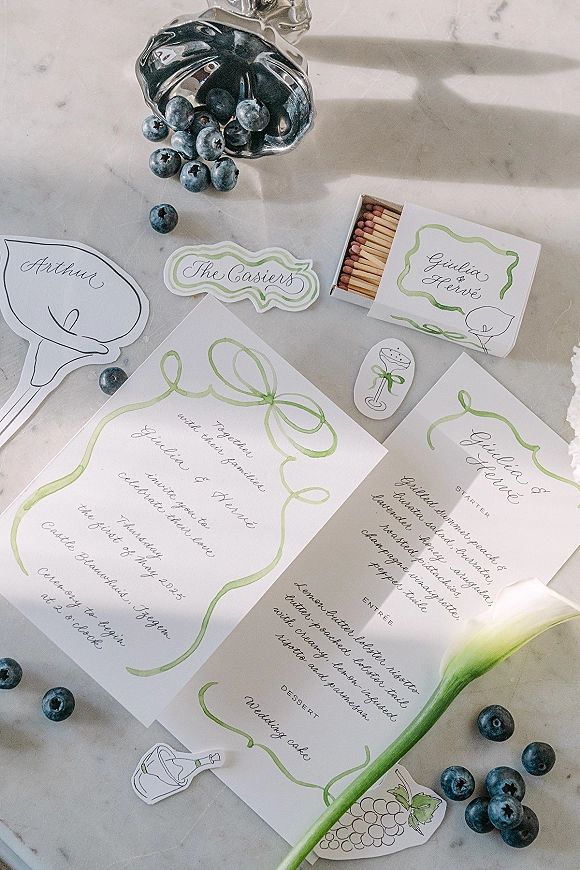 Arthur
The Casiers
Giulia
&
Hervé
Together
with their families
Giulia & Hervé
invite you to
celebrate their love
Thursday
the first of May 2025
Castle Blauwhuis, Izegem
Ceremony to begin
at 2 o'clock
Giulia &
Hervé
STARTER
Grilled summer peach &
burrata salad, burrata,
lavender honey, arugula,
roasted pistachios,
champagne vinaigrette,
ENTRÉE
Lemon butter lobster risotto
butter-poached lobster tail
with creamy, lemon-infused
risotto and parmesan
DESSERT
Wedding cake